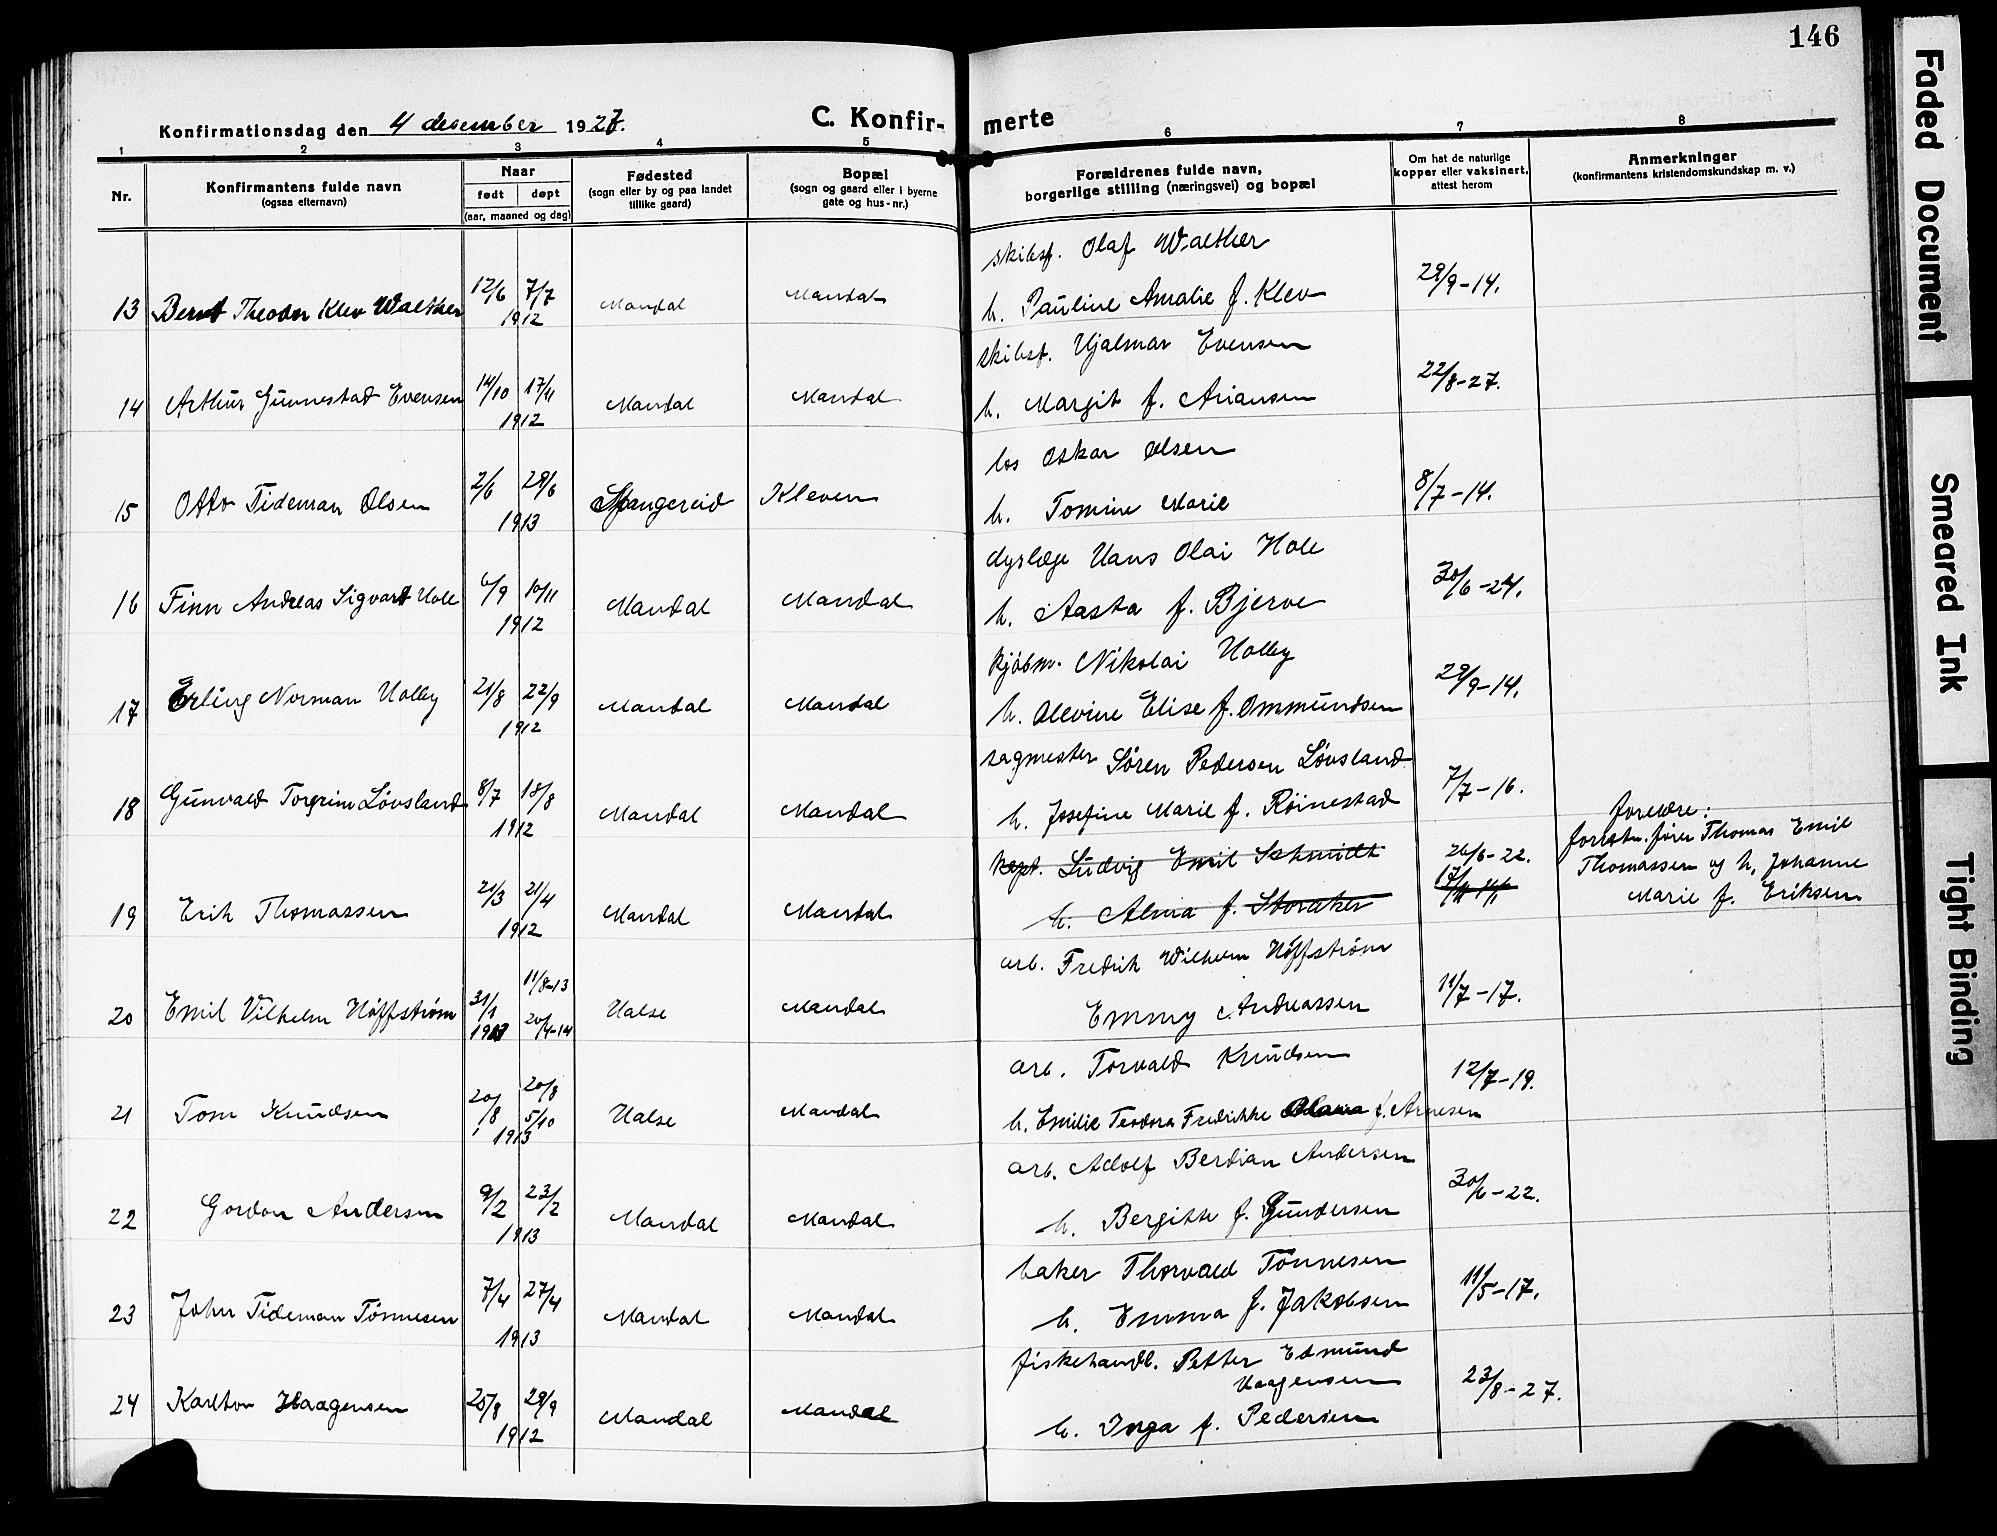 146
Konfirmationsdag den 4 desember 1927.
C. Konfir- merte
1 2 3 4 5 6 7 8
Nr.
Konfirmantens fulde navn
(ogsaa efternavn)
Naar
født døpt
(aar, maaned og dag)
Fødested
(sogn eller by og paa landet
tillike gaard)
Bopæl
(sogn og gaard eller i byerne
gate og hus-nr.)
Forældrenes fulde navn,
borgerlige stilling (næringsvei) og bopæl
Om hat de naturlige
kopper eller vaksinert,
attest herom
Anmerkninger
(konfirmantens kristendomskundskap m. v.)
skibsf. Olaf Walther
13 Bernt Theodor Klev Walther 12/6 7/7 1912 Mandal Mandal h. Pauline Amalie f. Klev 29/9-14.
skibsf. Hjalmar Evensen
14 Arthur Gunnestad Evensen 14/10 17/11 1912 Mandal Mandal h. Margit f. Ariansen 22/8-27.
los Oskar Olsen
15 Otto Tideman Olsen 2/6 29/6 1913 Spangereid Kleven h. Tomine Marie 8/7-14.
dyrlæge Hans Olai Hole
16 Finn Andreas Sigvart Hole 6/9 10/11 1912 Mandal Mandal h. Aasta f. Bjerve 30/6-24.
kjøbm. Nikolai Holby
17 Erling Norman Holby 21/8 22/9 1912 Mandal Mandal h. Olevine Elise f. Ommundsen 29/9-14.
sagmester Søren Pedersen Løvsland
18 Gunvald Torgrim Løvsland 8/7 18/8 1912 Mandal Mandal h. Josefine Marie f. Røinestad 7/7-16.
kapt. Ludvig Emil Schmidt 26/6-22.
19 Erik Thomassen 21/3 21/4 1912 Mandal Mandal h. Alma f. Storaker
forældre:
forstm. fører Thomas Emil
Thomassen og h. Johanne
Marie f. Eriksen
arb. Fredrik Wilhelm Höffstrøm
20 Emil Vilhelm Höffstrøm 31/1 1913 11/8-13 20/4-14 Halse Mandal Emmy Andreassen 11/7-17.
arb. Torvald Knudsen
21 Tom Knudsen 20/8 20/8 5/10 1913 Halse Mandal h. Emilie Teodora Fredrikke f. Arnesen 12/7-19.
arb. Adolf Berdian Andersen
22 Gordon Andersen 9/2 23/2 1913 Mandal Mandal h. Bergitte f. Gundersen 30/6-22.
baker Thorvald Tønnesen
23 John Tideman Tønnesen 7/4 27/4 1913 Mandal Mandal h. Emma f. Jakobsen 11/5-17.
fiskehandl. Petter Edmund
Haagensen
24 Karlton Haagensen 25/8 29/9 1912 Mandal Mandal h. Inga f. Pedersen 23/8-27.
Faded Document
Smeared Ink
Tight Binding